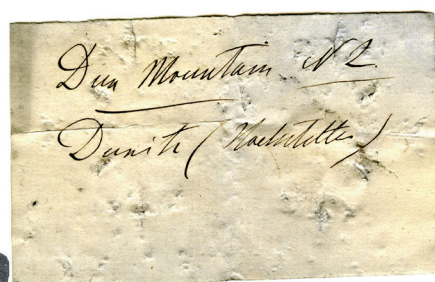 Dun Mountain N Z
Dunite (Hochstetter)